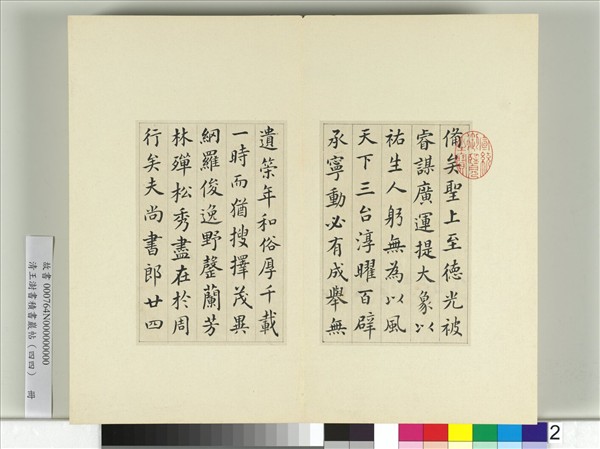 備矣聖上至德光被
睿謀廣運提大象以
祐生人躬無為以風
天下三台淳曜百辟
承寧動必有成舉無
遺策年和俗厚千載
一時而猶搜擇茂異
網羅俊逸野罄蘭芳
林殫松秀盡在於周
行矣夫尚書郎廿四
故書 000764N000000000
清王澍書積書巖帖(四四) 冊
2